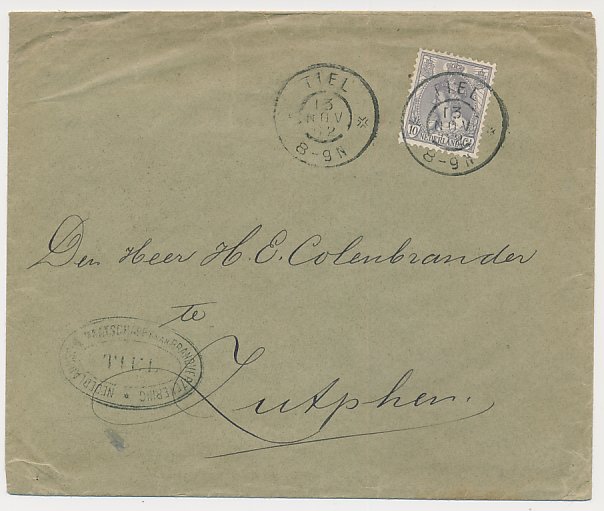 TIEL
13
NOV
02
8-9N
TIEL
13
NOV
8-9N
10 NEDERLAND Ct
Den Heer H.E. Colenbrander
te
Zutphen.
NEDERLANDSCHE MAATSCHAPPIJ VAN BRANDVERZEKERING
TIEL